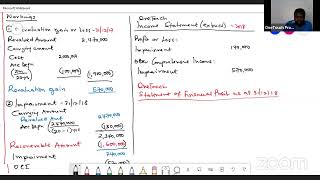 Microsoft Whiteboard
Workings
① Revaluation gain or Loss - 31/12/17
Revalued Amount 2,470,000
Carrying amount
Cost 2,000,000
Acc Depn
(100,000) (1,900,000)
Revaluation gain 570,000
② Impairment - 31/12/18
Carrying Amount
Revalued Amt 2470,000
Acc Depn
(20-1) (130,000)
2,340,000
Recoverable Amount (1,600,000)
Impairment 740,000
OCI
OneTech
Income Statement (extract) - 2018
Profit or Loss:
Impairment 170,000
Other Comprehensive Income:
Impairment 570,000
OneTech
Statement of Financial Position as at 31/12/18
OneTouch Pro...
zoom